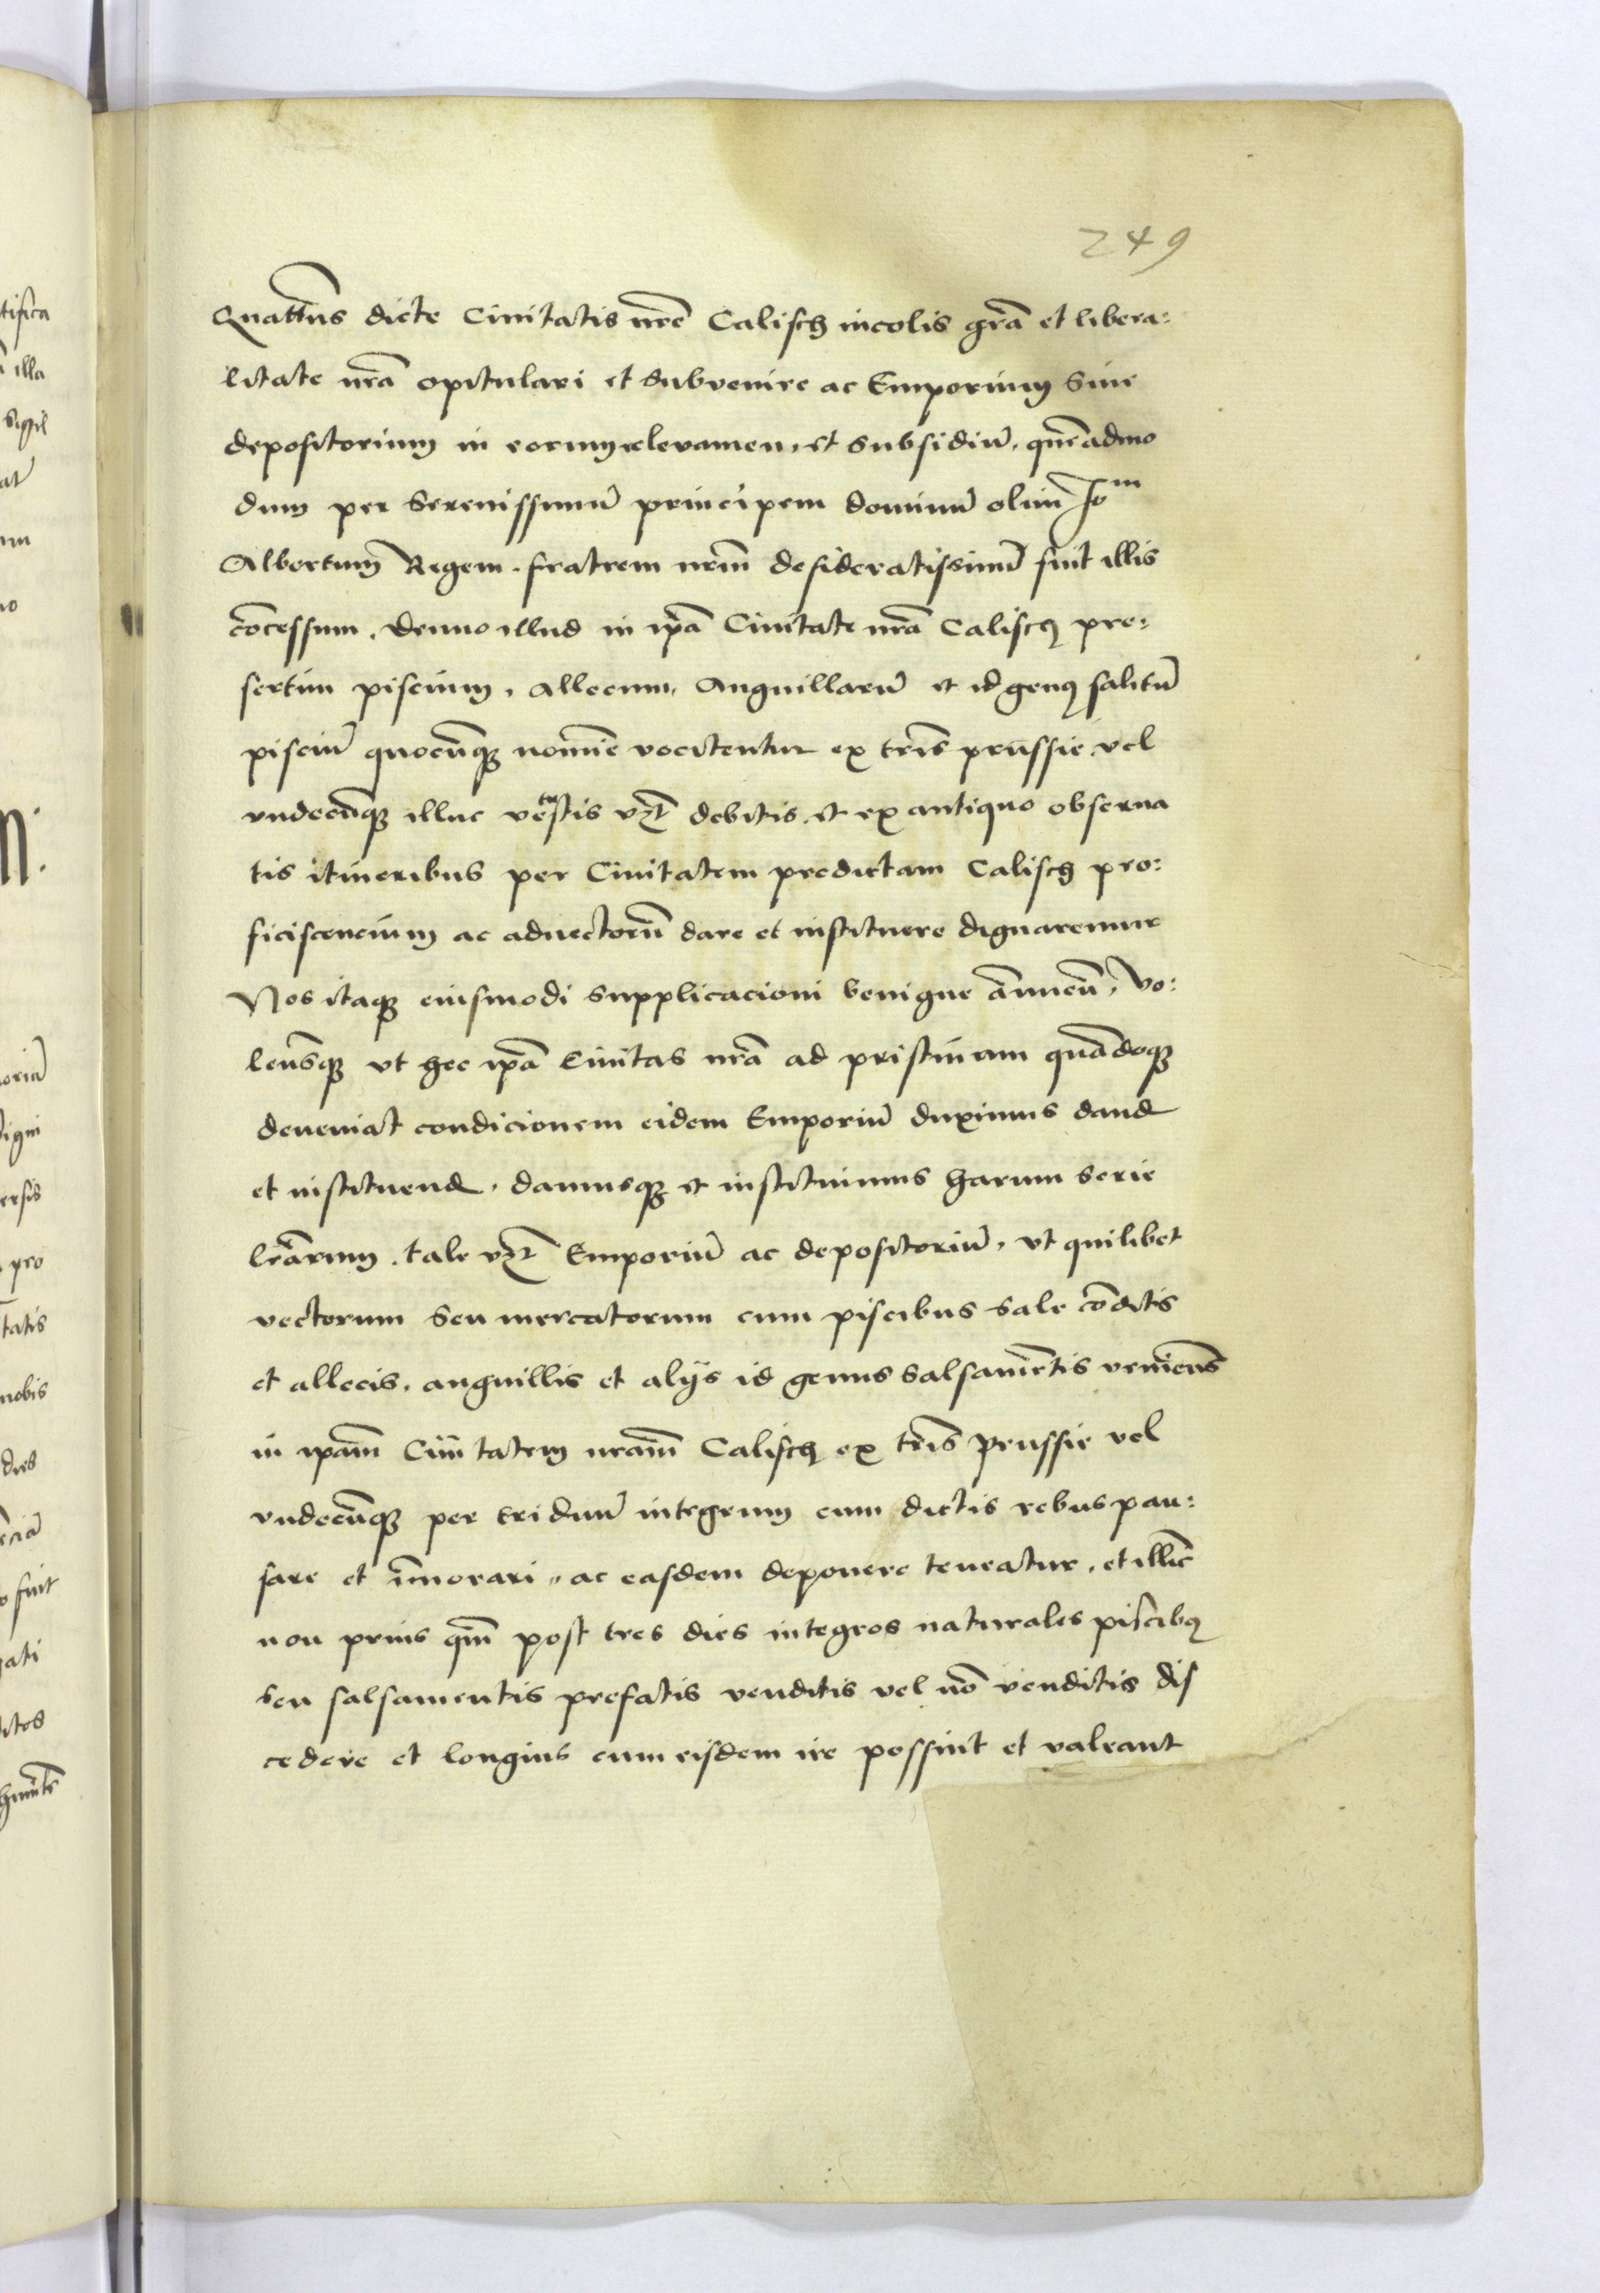 249
Quattenus dicte Civitatis nr̃e Calisch incolis gr̃a et libera:
litate nr̃a opitulari et subvenire ac Emporium sive
depositorium in eorum relevamen, et subsidiũ. quẽadmo
dum per Serenissimũ principem dominũ olim Joᵐ
Albertum Regem. fratrem nr̃m desideratissimũ fuit illis
cõcessum. denuo illud in ip̃a Civitate nr̃a Calisch pre:
sertim piscium, allecum, Anguillarũ et id genꝰ salitũ
pisciũ quocũqꝫ nomĩe vocitentur ex tr̃is prussie vel
vndecũqꝫ illuc vectis vꝫt debitis et ex antiquo observa
tis itineribus per Civitatem predictam Calisch pro:
ficiscencium ac advectorũ dare et instituere dignaremur
Nos itaqꝫ eiusmodi supplicacioni benigne ãnueñ, vo:
leñsqꝫ vt hec ip̃a Civitas nr̃a ad pristinam quãdoqꝫ
deveniat condicionem eidem Emporiũ duximus dand
et instituend. damusqꝫ et instituimus harum serie
lr̃arum. tale vꝫt Emporiũ ac depositoriũ, vt quilibet
vectorum seu mercatorum cum piscibus sale cõditis
et allecis, anguillis et alijs id genus salsamẽtis venieñs
in ip̃am Civitatem nr̃am Calisch ex tr̃is prussie vel
vndecũqꝫ per triduũ integrum cum dictis rebus pau:
sare et ĩmorari, ac easdem deponere teneatur, et illĩc
non prius qm̃ post tres dies integros naturales piscibꝰ
seu salsamentis prefatis venditis vel nõ venditis dis
cedere et longius cum eisdem ire possint et valeant